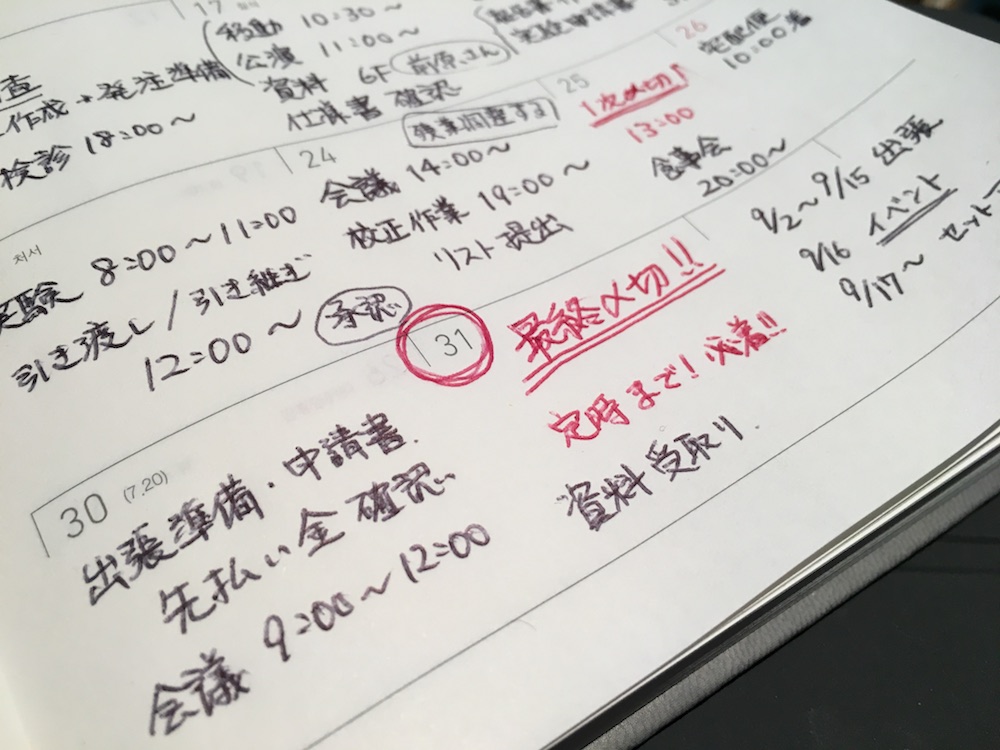 17
移動 10:30〜
公演 11:00〜
資料 6F 前原さん
仕様書 確認
査
作成→発注準備
検診 18:00〜
26
宅配便
10:00着
25
1次〆切!
13:00
食事会
20:00〜
24
残業調整する
会議 14:00〜
校正作業 19:00〜
リスト提出
처서
実験 8:00〜11:00
引き渡し/引き継ぎ
12:00〜 承認
9/2〜9/15 出張
9/16 イベント
9/17〜
31
最終〆切!!
定時まで!必着!!
資料受取り.
30 (7.20)
出張準備・申請書
先払い金 確認
会議 9:00〜12:00